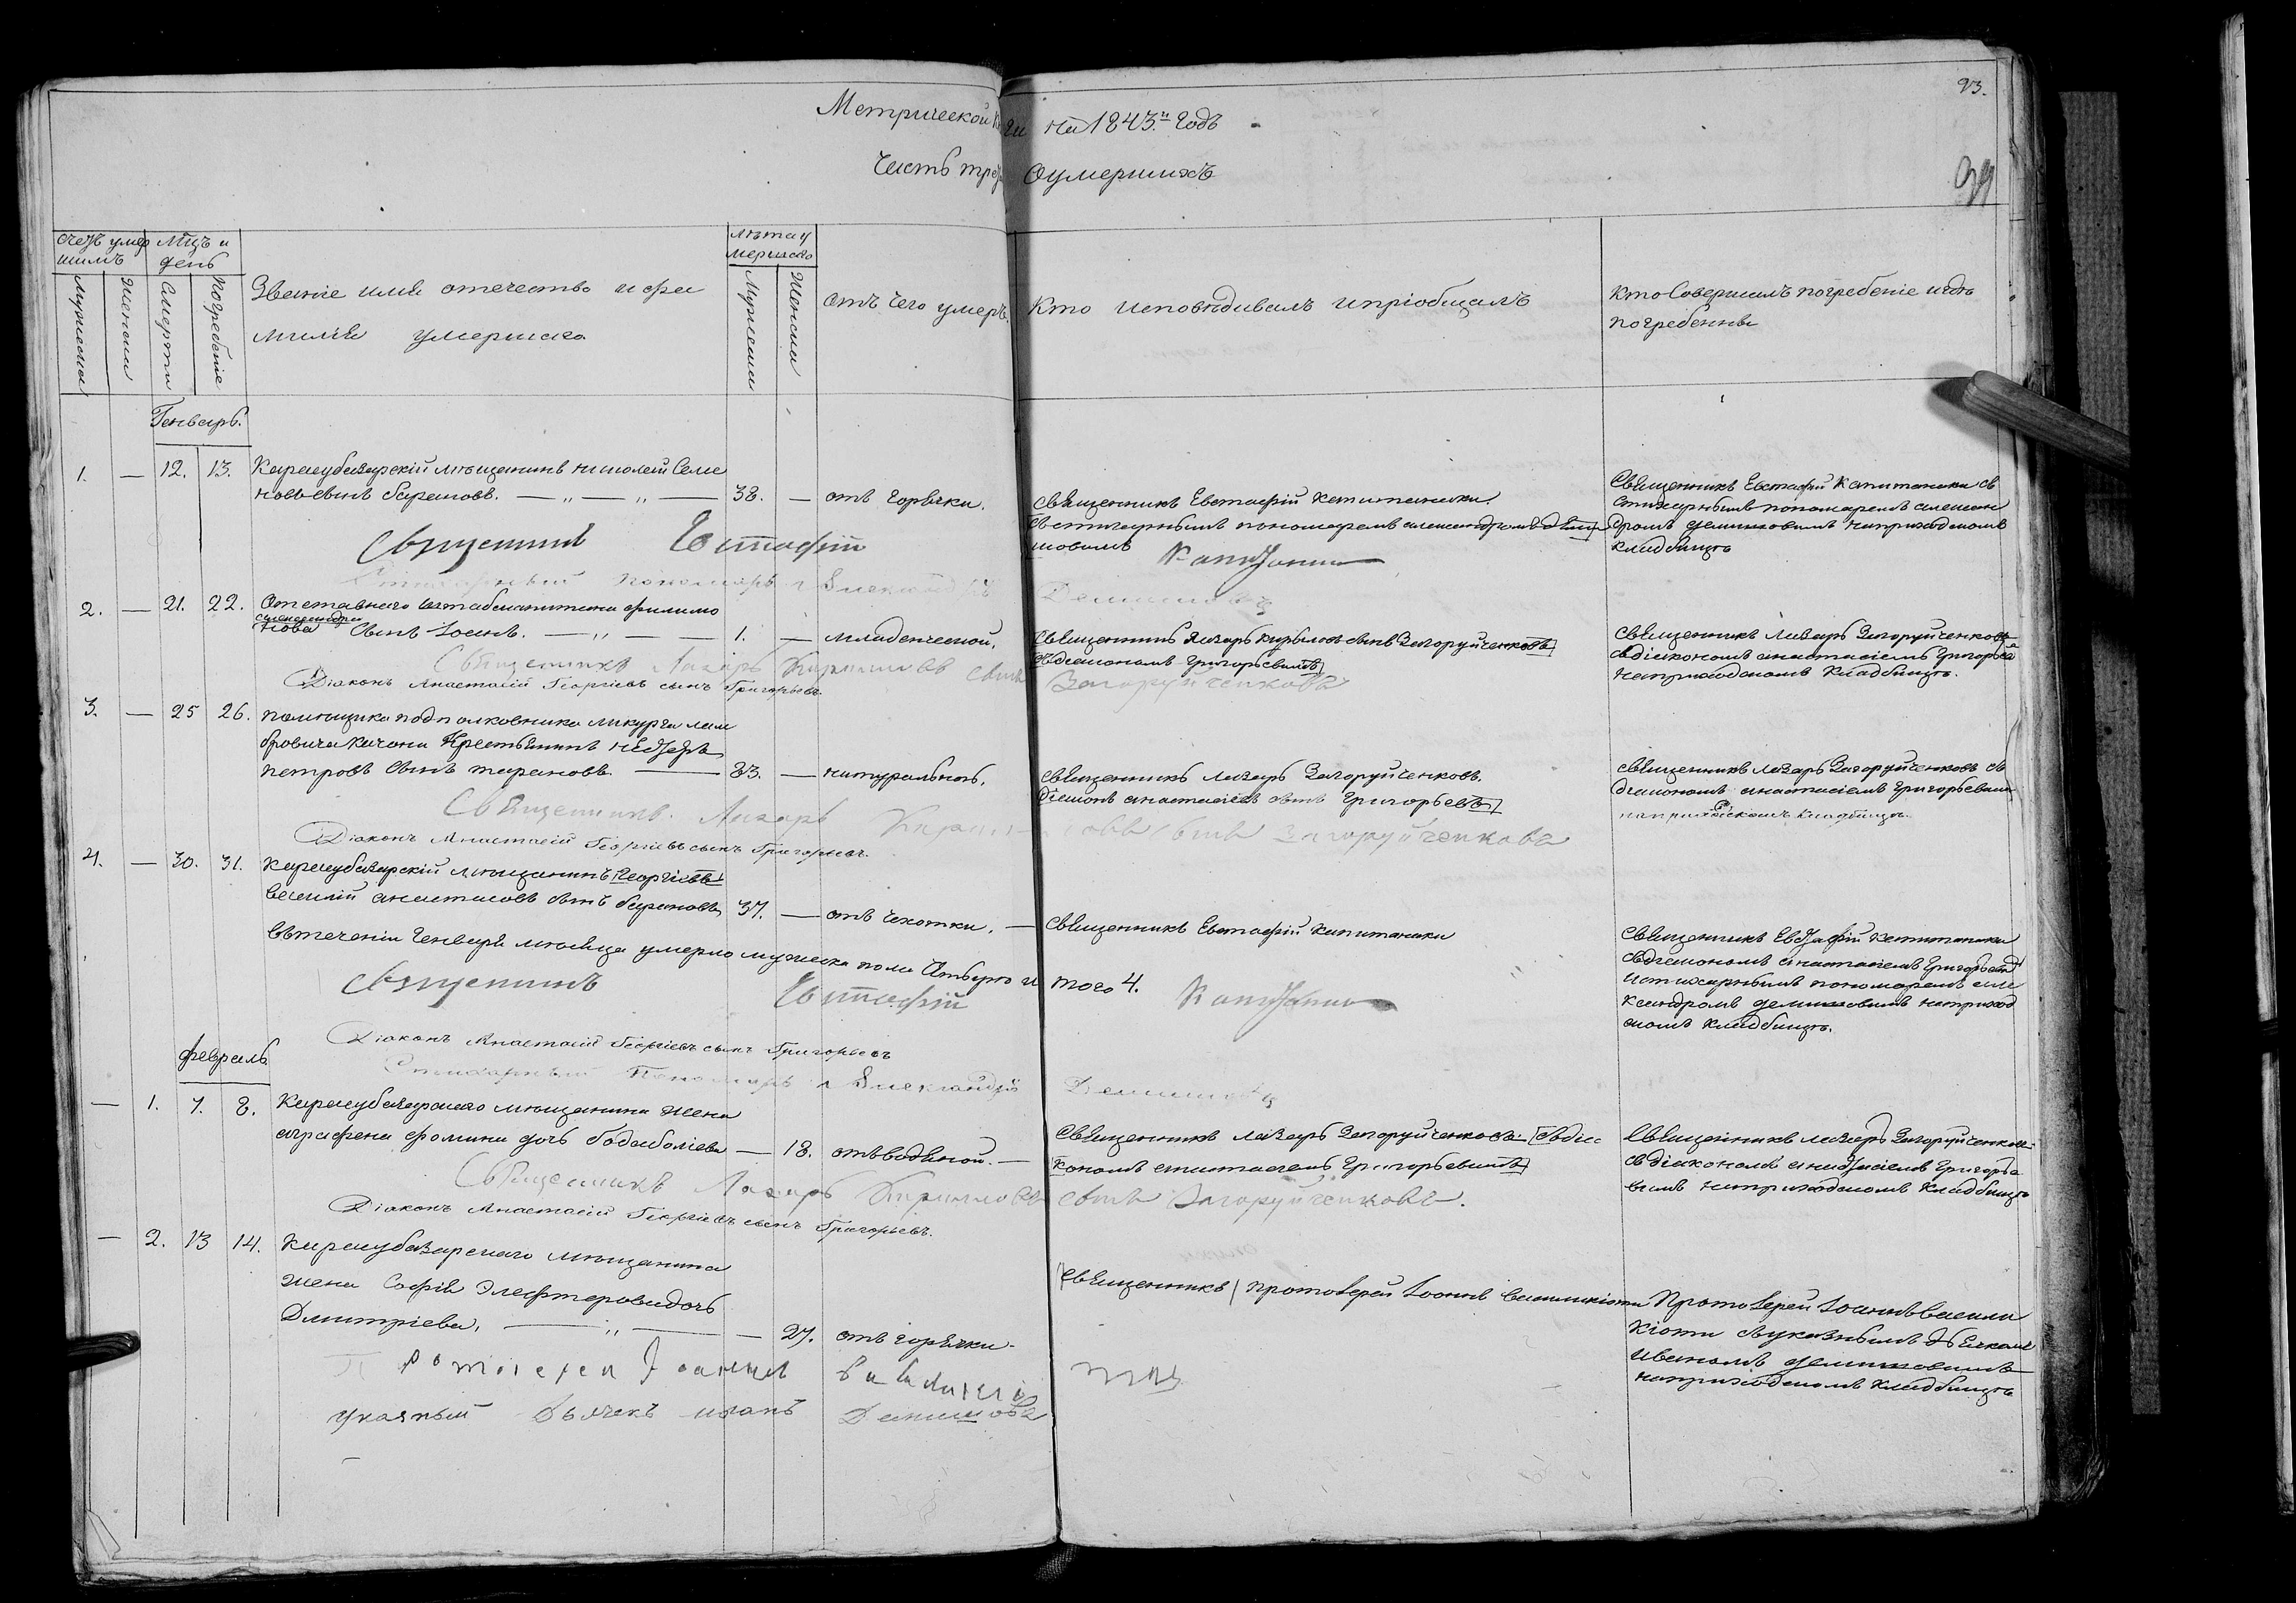 93.
Метрической книги на 1843й Годъ
Часть третья Оумершихъ
39
счетъ умер
шимъ
Мужеска
Женска
Мцъ и
день
Смерти
Погребеніе
Званіе имя отечество и фа
милія умершаго
лѣта у
мершаго
Мужеска
Женска
отъ чего умеръ.
Кто исповѣдивалъ ипріобщалъ
Кто Совершалъ погребеніе игдѣ
погребенны
Генварь.
1. — 12. 13. Карасубазарскій мѣщанинъ николай Семе
новъ сынъ барановъ. — „ — „ — 38. — отъ горячки.
Священникъ Евстафій Капитанаки
Систихарнымъ пономаремъ александромъ деми
шовымъ
Священникъ Евстафій Капитанаки съ
стихарнымъ пономаремъ алексан
дромъ демишовымъ наприходскомъ
кладбищѣ
Священникъ Евстафій Капитанаки
Стихарный пономарь Александръ Демишовъ
2. — 21. 22. Отставнаго штабскапитана филимо
александра
нова Сынъ Іоанъ. — „ — — 1. — младенческой.
Священникъ Лазарь Кириловъ сынъ Загоруйченковъ
съдіакономъ Григорьевымъ
Священникъ лазарь Загоруйченковъ
съдіакономъ анастасіемъ Григорье
наприходскомъ Кладбищѣ.
Священникъ Лазарь Кириловъ сынъ Загоруйченковъ
Діаконъ Анастасій Георгіевъ сынъ Григорьевъ.
3. — 25 26. помѣщика подполковника ликурга лам
бровича качони Крестьянинъ
петровъ Сынъ тарановъ. — 83. — натуральной.
Священникъ лазарь Загоруйченковъ.
діаконъ анастасіевъ сынъ Григорьевъ
Священникъ лазарь Загоруйченковъ съ
діакономъ анастасіемъ Григорьевымъ
наприходскомъ кладбищѣ.
Священникъ Лазарь Кириловъ сынъ Загоруйченковъ
Діаконъ Анастасій Георгіевъ сынъ Григорьевъ.
4. — 30. 31. Карасубазарскій мѣщанинъ Георгіевъ
василій анастасовъ сынъ барановъ 37. — отъ чехотки. —
Священникъ Евстафій Капитанаки
Священникъ Евстафій Капитанаки
съдіакономъ анастасіемъ Григорьевымъ
истихарнымъ пономаремъ але
ксандромъ демишовымъ наприход
скомъ кладбищѣ.
Втеченіи Генваря мѣсяца умерло мужеска пола Четверо итого 4.
Священникъ Евстафій Капитанаки
Діаконъ Анастасій Георгіевъ сынъ Григорьевъ
Стихарный Пономарь Александръ Демишовъ
февраль
— 1. 7. 8. Карасубазарскаго мѣщанина жена
аграфена фомина дочь — 18. отъводяной. —
Священникъ лазарь Загоруйченковъ съдіа
кономъ анастасіемъ Григорьевымъ
Священникъ лазарь Загоруйченковъ
съдіакономъ анастасіемъ Григорье
вымъ наприходскомъ Кладбищѣ
Священникъ Лазарь Кириловъ сынъ Загоруйченковъ.
Діаконъ Анастасій Георгіевъ сынъ Григорьевъ.
— 2. 13 14. Карасубазарскаго мѣщанина
жена Софія Элефтеровадочь
Дмитріева. — „ — — 27. отъ горячки.
Священникъ протоіерей Іоаннъ василикіоти
Протоіерей Іоаннъ васили
кіоти съуказнымъ дьячкомъ
иваномъ демишовымъ
наприходскомъ кладбищѣ
Протоіерей Іоаннъ
указный Дьячекъ иванъ Демишовъ